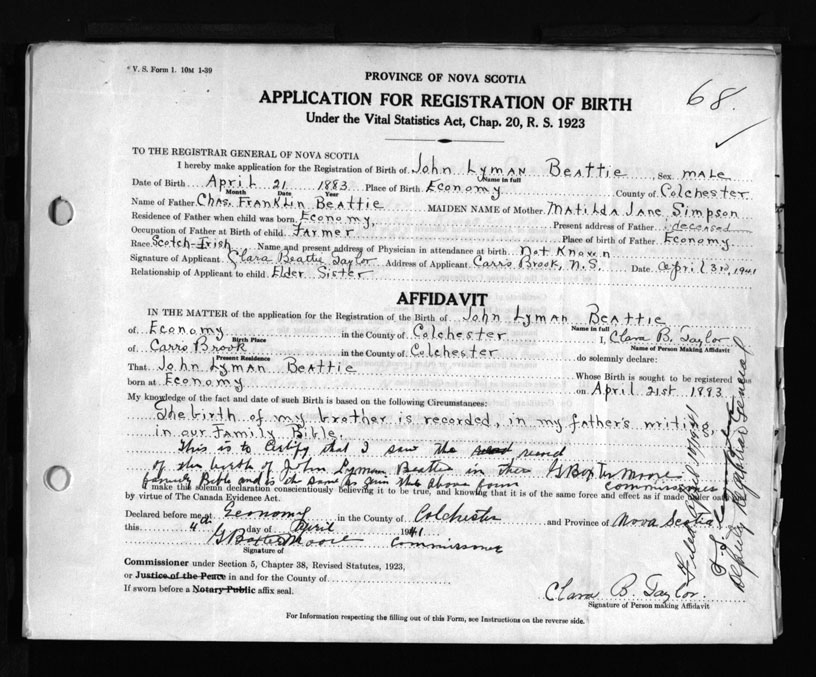 * V. S. Form 1. 10M 1-39
PROVINCE OF NOVA SCOTIA
68.
APPLICATION FOR REGISTRATION OF BIRTH
Under the Vital Statistics Act, Chap. 20, R. S. 1923
TO THE REGISTRAR GENERAL OF NOVA SCOTIA
I hereby make application for the Registration of Birth of John Lyman Beattie, Sex male
Name in full
Date of Birth April 21 1883 Place of Birth Economy County of Colchester
Month Date Year
Name of Father Chas. Franklin Beattie MAIDEN NAME of Mother Matilda Jane Simpson
Residence of Father when child was born Economy, Present address of Father deceased
Occupation of Father at Birth of child Farmer Place of birth of Father Economy.
Race Scotch-Irish Name and present address of Physician in attendance at birth Not Known
Signature of Applicant Clara Beattie Taylor Address of Applicant Carrs Brook, N.S. Date April 3rd, 1941
Relationship of Applicant to child Elder Sister
AFFIDAVIT
IN THE MATTER of the application for the Registration of the Birth of John Lyman Beattie
Name in full
of Economy in the County of Colchester I, Clara B. Taylor
Birth Place Name of Person Making Affidavit
of Carrs Brook in the County of Colchester do solemnly declare:
Present Residence
That John Lyman Beattie Whose Birth is sought to be registered was
born at Economy on April 21st 1883
My knowledge of the fact and date of such Birth is based on the following Circumstances:
The birth of my brother is recorded, in my father's writing,
in our Family Bible.
This is to Certify that I saw the record
of the birth of John Lyman Beattie in the G Baxter Moore
family Bible and is the same as given the above form Commissioner
make this solemn declaration conscientiously believing it to be true, and knowing that it is of the same force and effect as if made under oath
by virtue of The Canada Evidence Act.
Declared before me at Economy in the County of Colchester and Province of Nova Scotia
this 4th day of April 1941
G Baxter Moore Commissioner
Signature of
Commissioner under Section 5, Chapter 38, Revised Statutes, 1923,
or Justice of the Peace in and for the County of
If sworn before a Notary Public affix seal.
Clara B. Taylor.
Signature of Person making Affidavit
For Information respecting the filling out of this Form, see Instructions on the reverse side.
Filed
Deputy Registrar General